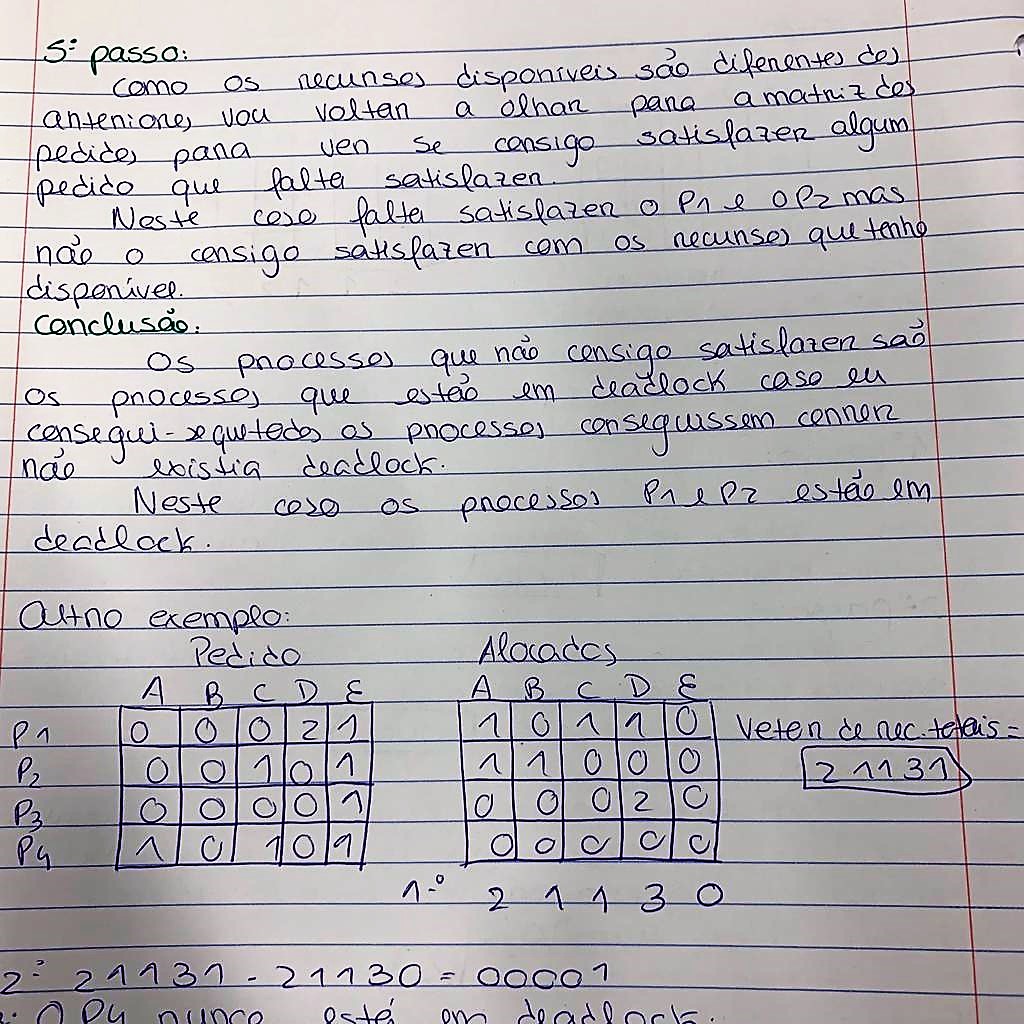 5º passo:
Como os recursos disponíveis são diferentes dos
anteriores vou voltar a olhar para a matriz dos
pedidos para ver se consigo satisfazer algum
pedido que falta satisfazer.
Neste caso falta satisfazer o P1 e o P2 mas
não o consigo satisfazer com os recursos que tenho
disponível.
Conclusão:
Os processos que não consigo satisfazer são
os processos que estão em deadlock caso eu
consegui-se que todos os processos conseguissem correr
não existia deadlock.
Neste caso os processos P1 e P2 estão em
deadlock.
Outro exemplo:
Pedido Alocados
A B C D E A B C D E
P1 0 0 0 2 1 1 0 1 1 0 Vetor de rec. totais =
P2 0 0 1 0 1 1 1 0 0 0 21131
P3 0 0 0 0 1 0 0 0 2 0
P4 1 0 1 0 1 0 0 0 0 0
1º 2 1 1 3 0
2º 21131 - 21130 = 00001
O P4 nunca está em deadlock.